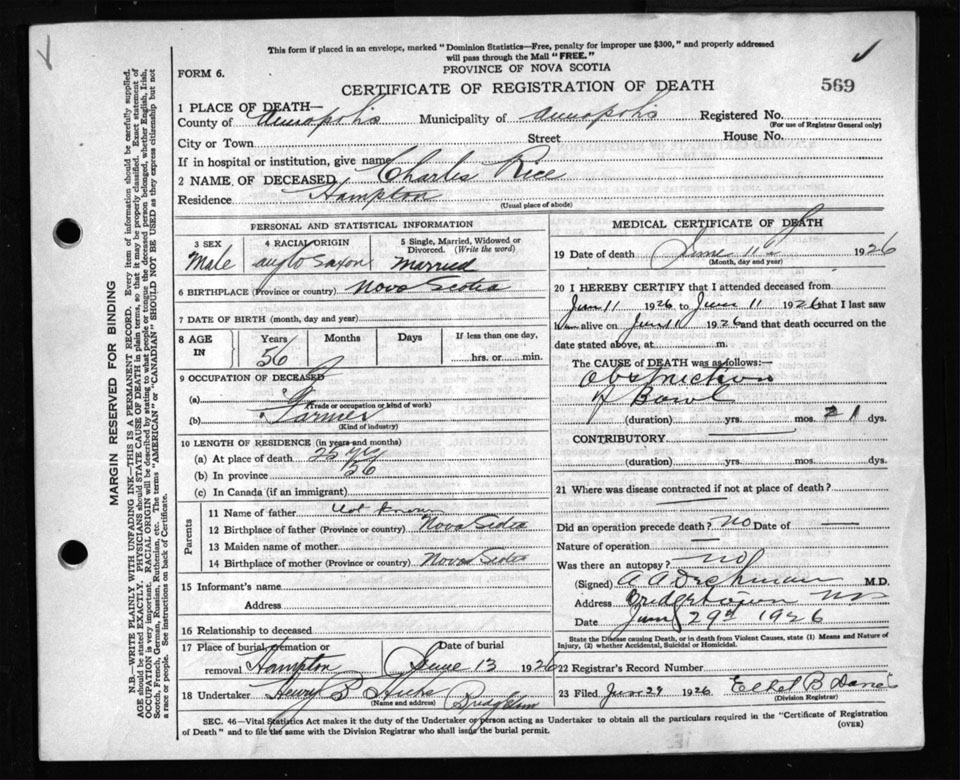 This form if placed in an envelope, marked "Dominion Statistics—Free, penalty for improper use $300," and properly addressed
will pass through the Mail "FREE."
PROVINCE OF NOVA SCOTIA
FORM 6.
CERTIFICATE OF REGISTRATION OF DEATH
569
1 PLACE OF DEATH—
County of Annapolis Municipality of Annapolis Registered No.
(For use of Registrar General only)
City or Town Street House No.
If in hospital or institution, give name
2 NAME OF DECEASED Charles Rice
Residence Hampton
(Usual place of abode)
PERSONAL AND STATISTICAL INFORMATION
3 SEX 4 RACIAL ORIGIN 5 Single, Married, Widowed or Divorced. (Write the word)
Male anglo Saxon Married
6 BIRTHPLACE (Province or country) Nova Scotia
7 DATE OF BIRTH (month, day and year)
8 AGE IN Years Months Days If less than one day,
56 hrs. or min.
9 OCCUPATION OF DECEASED
(a)
(Trade or occupation or kind of work)
(b) Farmer
(Kind of industry)
10 LENGTH OF RESIDENCE (in years and months)
(a) At place of death 25 yrs
(b) In province 56
(c) In Canada (if an immigrant)
Parents
11 Name of father not known
12 Birthplace of father (Province or country) Nova Scotia
13 Maiden name of mother
14 Birthplace of mother (Province or country) Nova Scotia
15 Informant's name
Address
16 Relationship to deceased
17 Place of burial, cremation or removal Hampton Date of burial June 13 1926
18 Undertaker Henry B Hicks
(Name and address) Bridgetown
MEDICAL CERTIFICATE OF DEATH
19 Date of death June 11 1926
(Month, day and year)
20 I HEREBY CERTIFY that I attended deceased from
Jun 11 1926 to June 11 1926 that I last saw
him alive on June 11 1926 and that death occurred on
date stated above, at m.
The CAUSE OF DEATH was as follows:—
Obstruction
of Bowel
(duration) yrs. mos. 1 dys.
CONTRIBUTORY
(duration) yrs. mos. dys.
21 Where was disease contracted if not at place of death?
Did an operation precede death? no Date of —
Nature of operation —
Was there an autopsy? no
(Signed) A A Dechman M.D.
Address Bridgetown NS
Date June 29th 1926
State the Disease causing Death, or in death from Violent Causes, state (1) Means and Nature of
Injury, (2) whether Accidental, Suicidal or Homicidal.
22 Registrar's Record Number
23 Filed Jun 29 1926 Ethel B
(Division Registrar)
SEC. 46—Vital Statistics Act makes it the duty of the Undertaker or person acting as Undertaker to obtain all the particulars required in the "Certificate of Registration
of Death" and to file the same with the Division Registrar who shall issue the burial permit.
(OVER)
MARGIN RESERVED FOR BINDING
N.B.—WRITE PLAINLY, WITH UNFADING INK—THIS IS A PERMANENT RECORD. Every item of information should be carefully supplied.
AGE should be stated EXACTLY. PHYSICIANS should STATE CAUSE OF DEATH in plain terms, so that it may be properly classified. Exact statement of
OCCUPATION is very important. RACIAL ORIGIN will be described by stating to what people or tongue the deceased person belonged, whether English, Irish,
Scotch, French, German, Russian, Ruthenian, etc. The terms "AMERICAN" or "CANADIAN" SHOULD NOT BE USED as they express citizenship but not
a race or people. See instructions on back of Certificate.